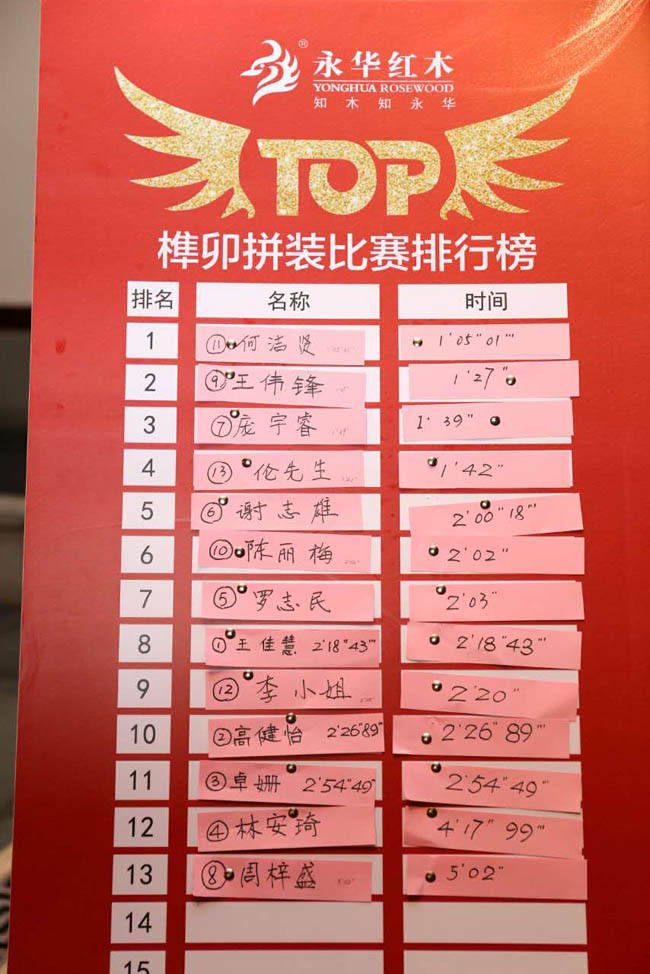 ®
永华红木
YONGHUA ROSEWOOD
知木知永华
TOP
榫卯拼装比赛排行榜
排名 名称 时间
1 ⑪何洁贤 1'05"01'''
2 ⑨王伟锋 1'27"
3 ⑦庞宇睿 1'39"
4 ⑬伦先生 1'42"
5 ⑥谢志雄 2'00"18'''
6 ⑩陈丽梅 2'02"
7 ⑤罗志民 2'03"
8 ①王佳慧 2'18"43''' 2'18"43'''
9 ⑫李小姐 2'20"
10 ②高健怡 2'26"89''' 2'26"89'''
11 ③卓姗 2'54"49''' 2'54"49'''
12 ④林安琦 4'17"99'''
13 ⑧周梓盛 5'02"
14
15